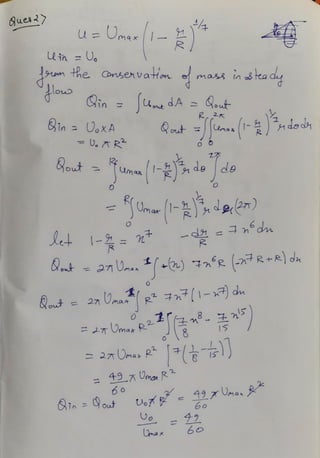 Ques 2>
u = Umax (1 - r/R)^1/7
Uin = U₀
from the conservation of mass in steady
flow
Qin = ∫Uout dA = Qout
Qin = U₀ x A    Qout = ∫₀^R ∫₀^2π Umax (1 - r/R)^1/7 r dθ dr
= U₀ π R²
Qout = ∫₀^R Umax (1 - r/R)^1/7 r dr ∫₀^2π dθ
= ∫₀^R Umax (1 - r/R)^1/7 r dr (2π)
let 1 - r/R = n⁷    -dr/R = 7n⁶dn
Qout = 2π Umax ∫₀^1 +(n) 7n⁶R (-n⁷R + R) dn
Qout = 2π Umax ∫₀^1 R² 7n⁷ (1 - n⁷) dn
= 2π Umax R² ∫₀^1 (7/8 n⁸ - 7/15 n¹⁵)
= 2π Umax R² [7 (1/8 - 1/15)]
= 49/60 π Umax R²
Qin = Qout    U₀ π R² = 49/60 π Umax R²
U₀/Umax = 49/60